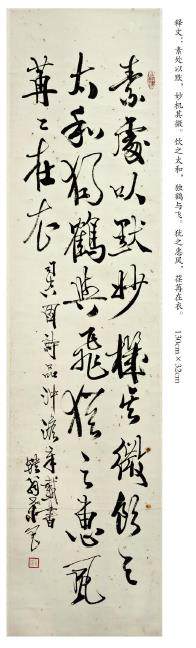 释文：素处以致，妙机其微。饮之太和，独鹤与飞。犹之惠风，荏苒在衣。 130cm×32cm
素處以默妙機其微飲之
太和獨鶴與飛猶之惠風
苒々在衣
司空圖詩品沖澹書